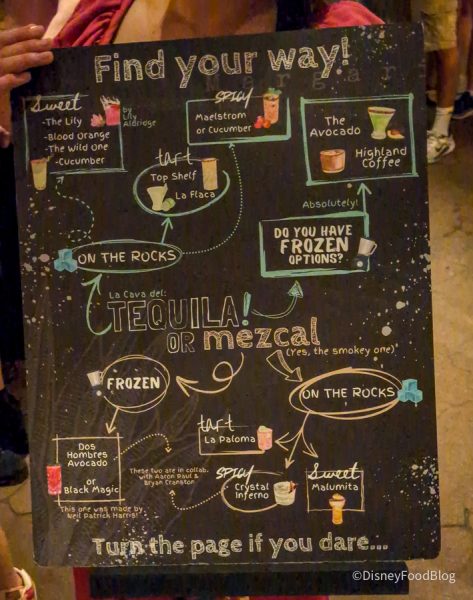 Find your way!
Sweet
-The Lily
by Lily Aldridge
-Blood Orange
-The Wild One
-Cucumber
SPICY
Maelstrom
or Cucumber
tart
Top Shelf
La Flaca
The
Avocado
Highland
Coffee
Absolutely!
DO YOU HAVE
FROZEN
OPTIONS?
ON THE ROCKS
La Cava del:
TEQUILA!
OR mezcal
(Yes, the smokey one)*
FROZEN
ON THE ROCKS
tart
La Paloma
Dos
Hombres
Avocado
or
Black Magic
This one was made by
Neil Patrick Harris!
These two are in collab.
with Aaron Paul &
Bryan Cranston
SPICY
Crystal
Inferno
Sweet
Malumita
Turn the page if you dare...
©DisneyFoodBlog